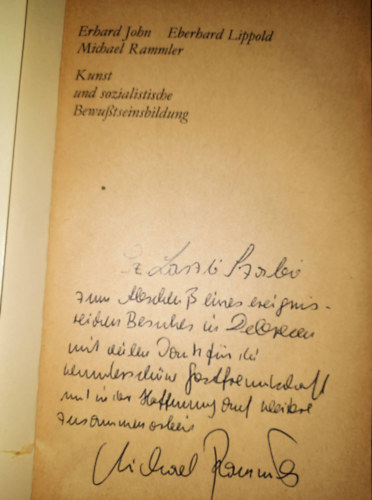 Erhard John Eberhard Lippold
Michael Rammler
Kunst
und sozialistische
Bewußtseinsbildung
László Szabó
zum Abschluß eines ereignis-
reichen Besuches in Debrecen
mit vielen Dank für die
wunderschöne Gastfreundschaft
und in der Hoffnung auf weitere
Zusammenarbeit
Michael Rammler